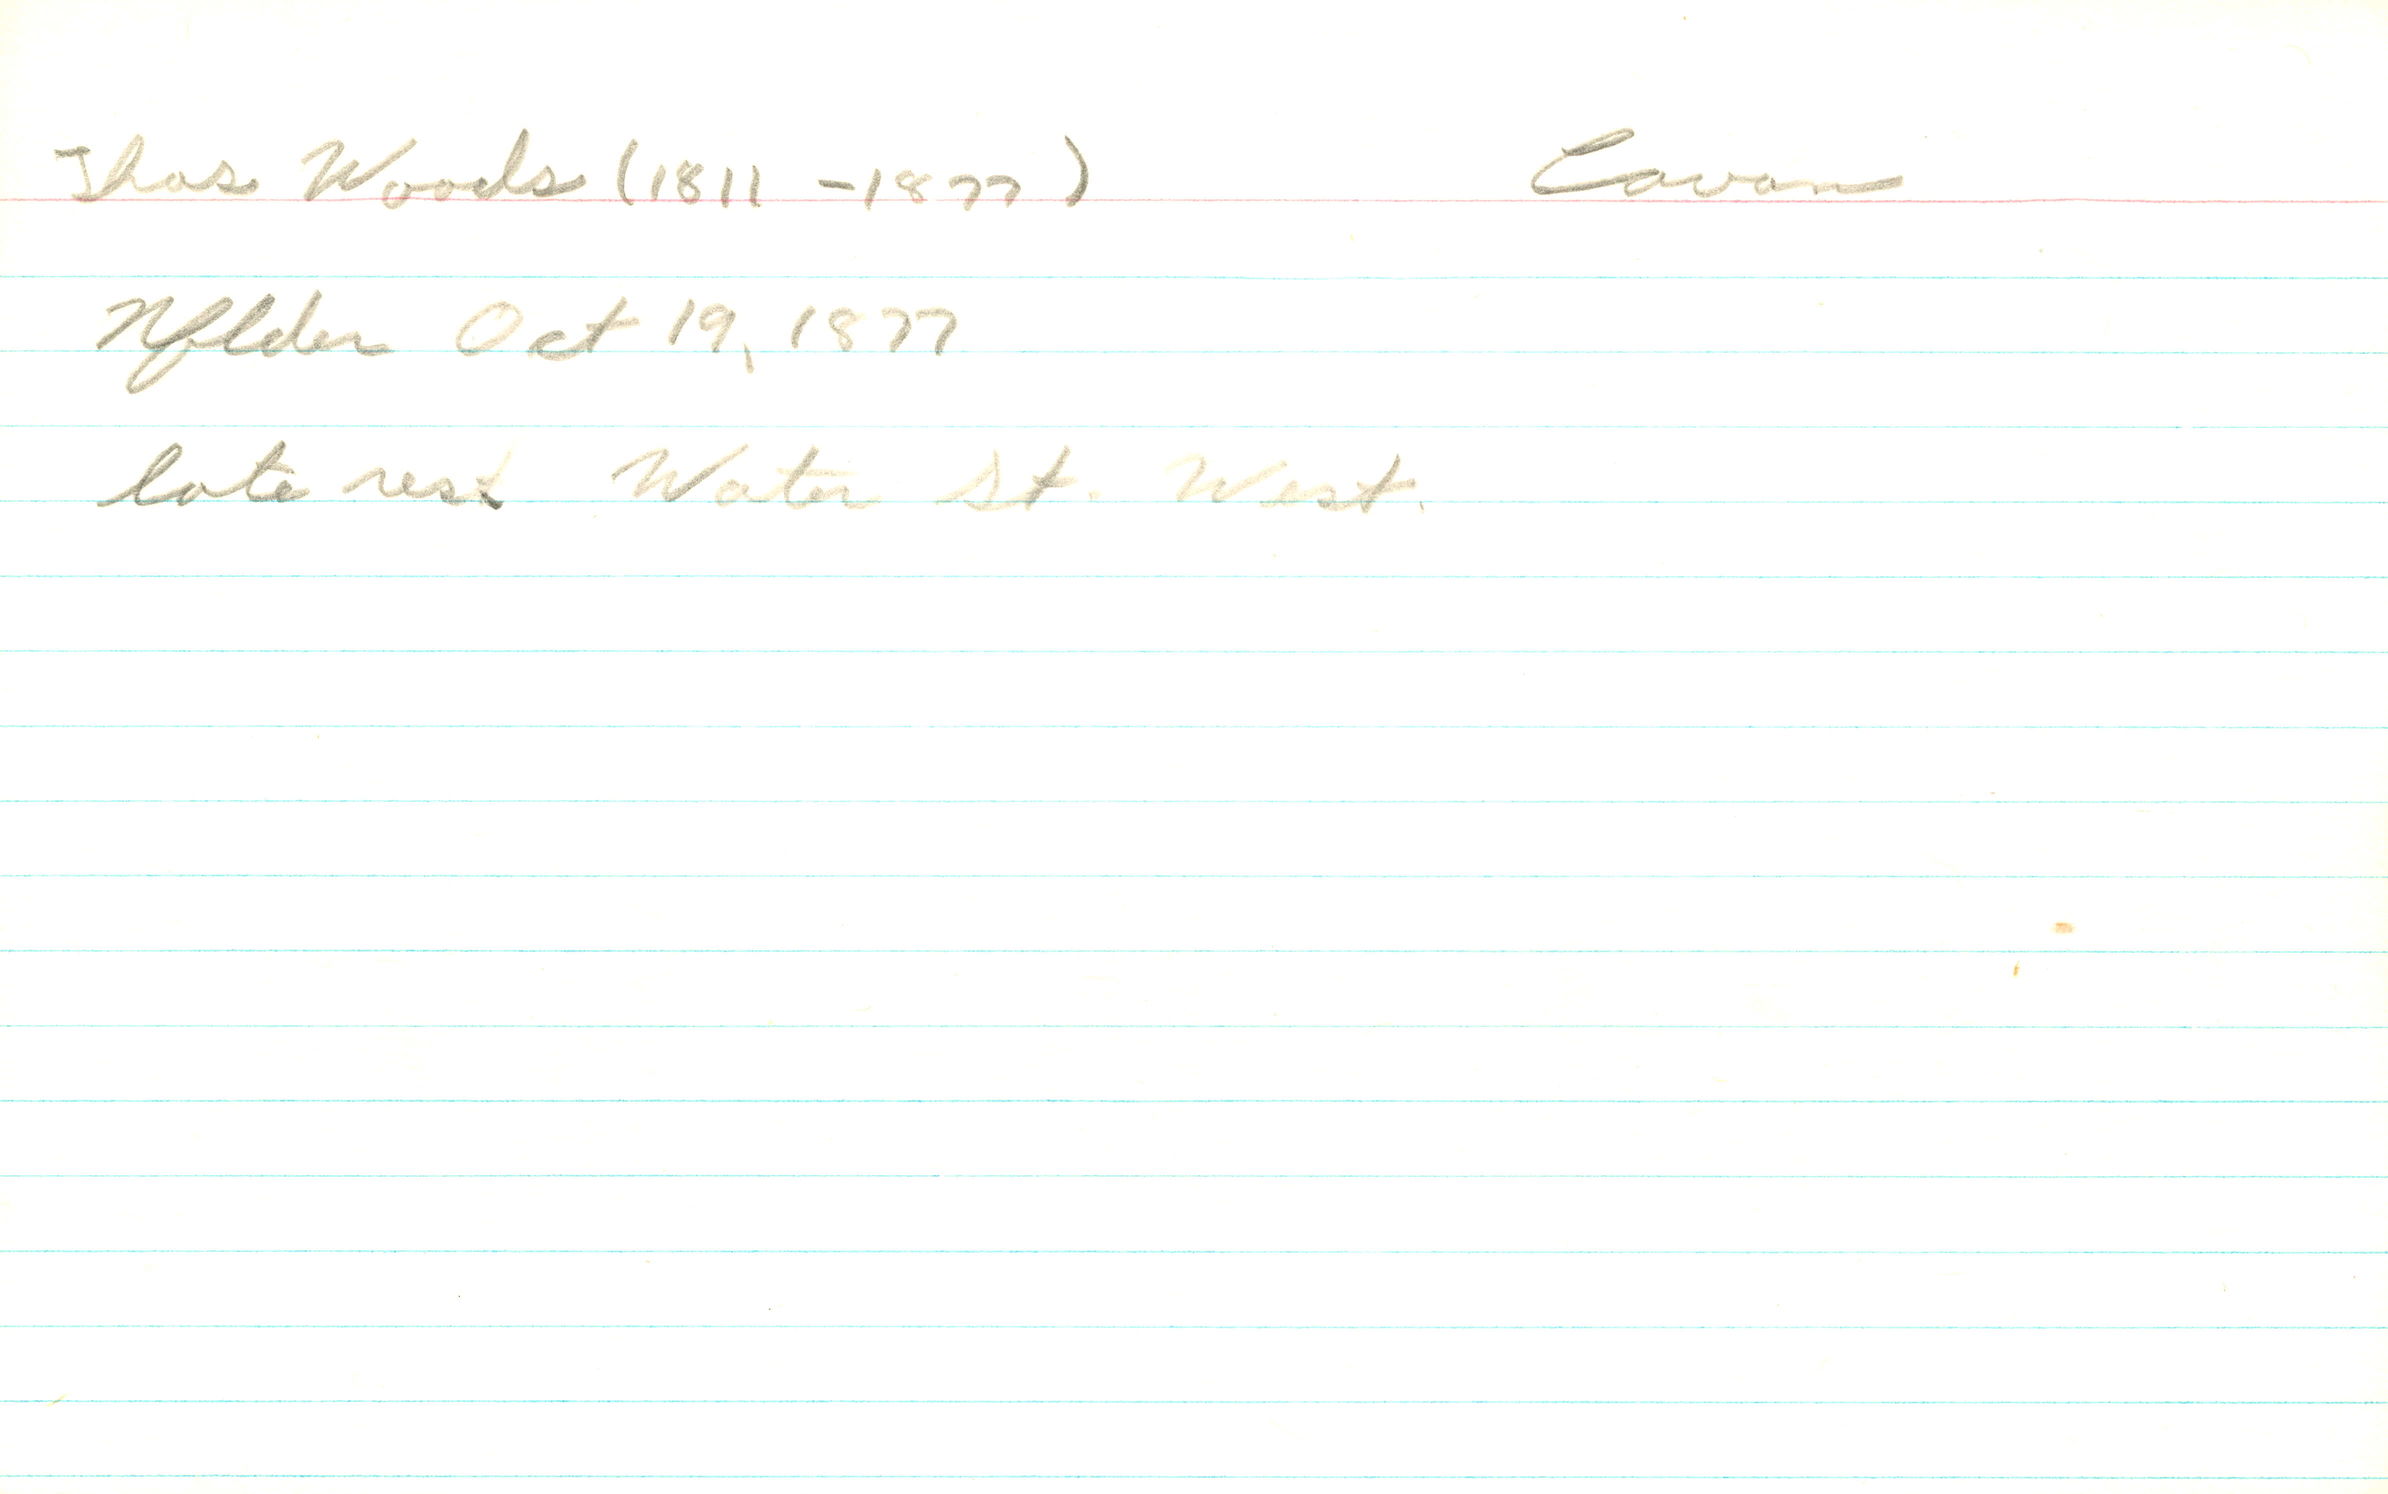 Thos Woods (1811 - 1877) Cavan
Nflder Oct 19, 1877
late res Water St. West.